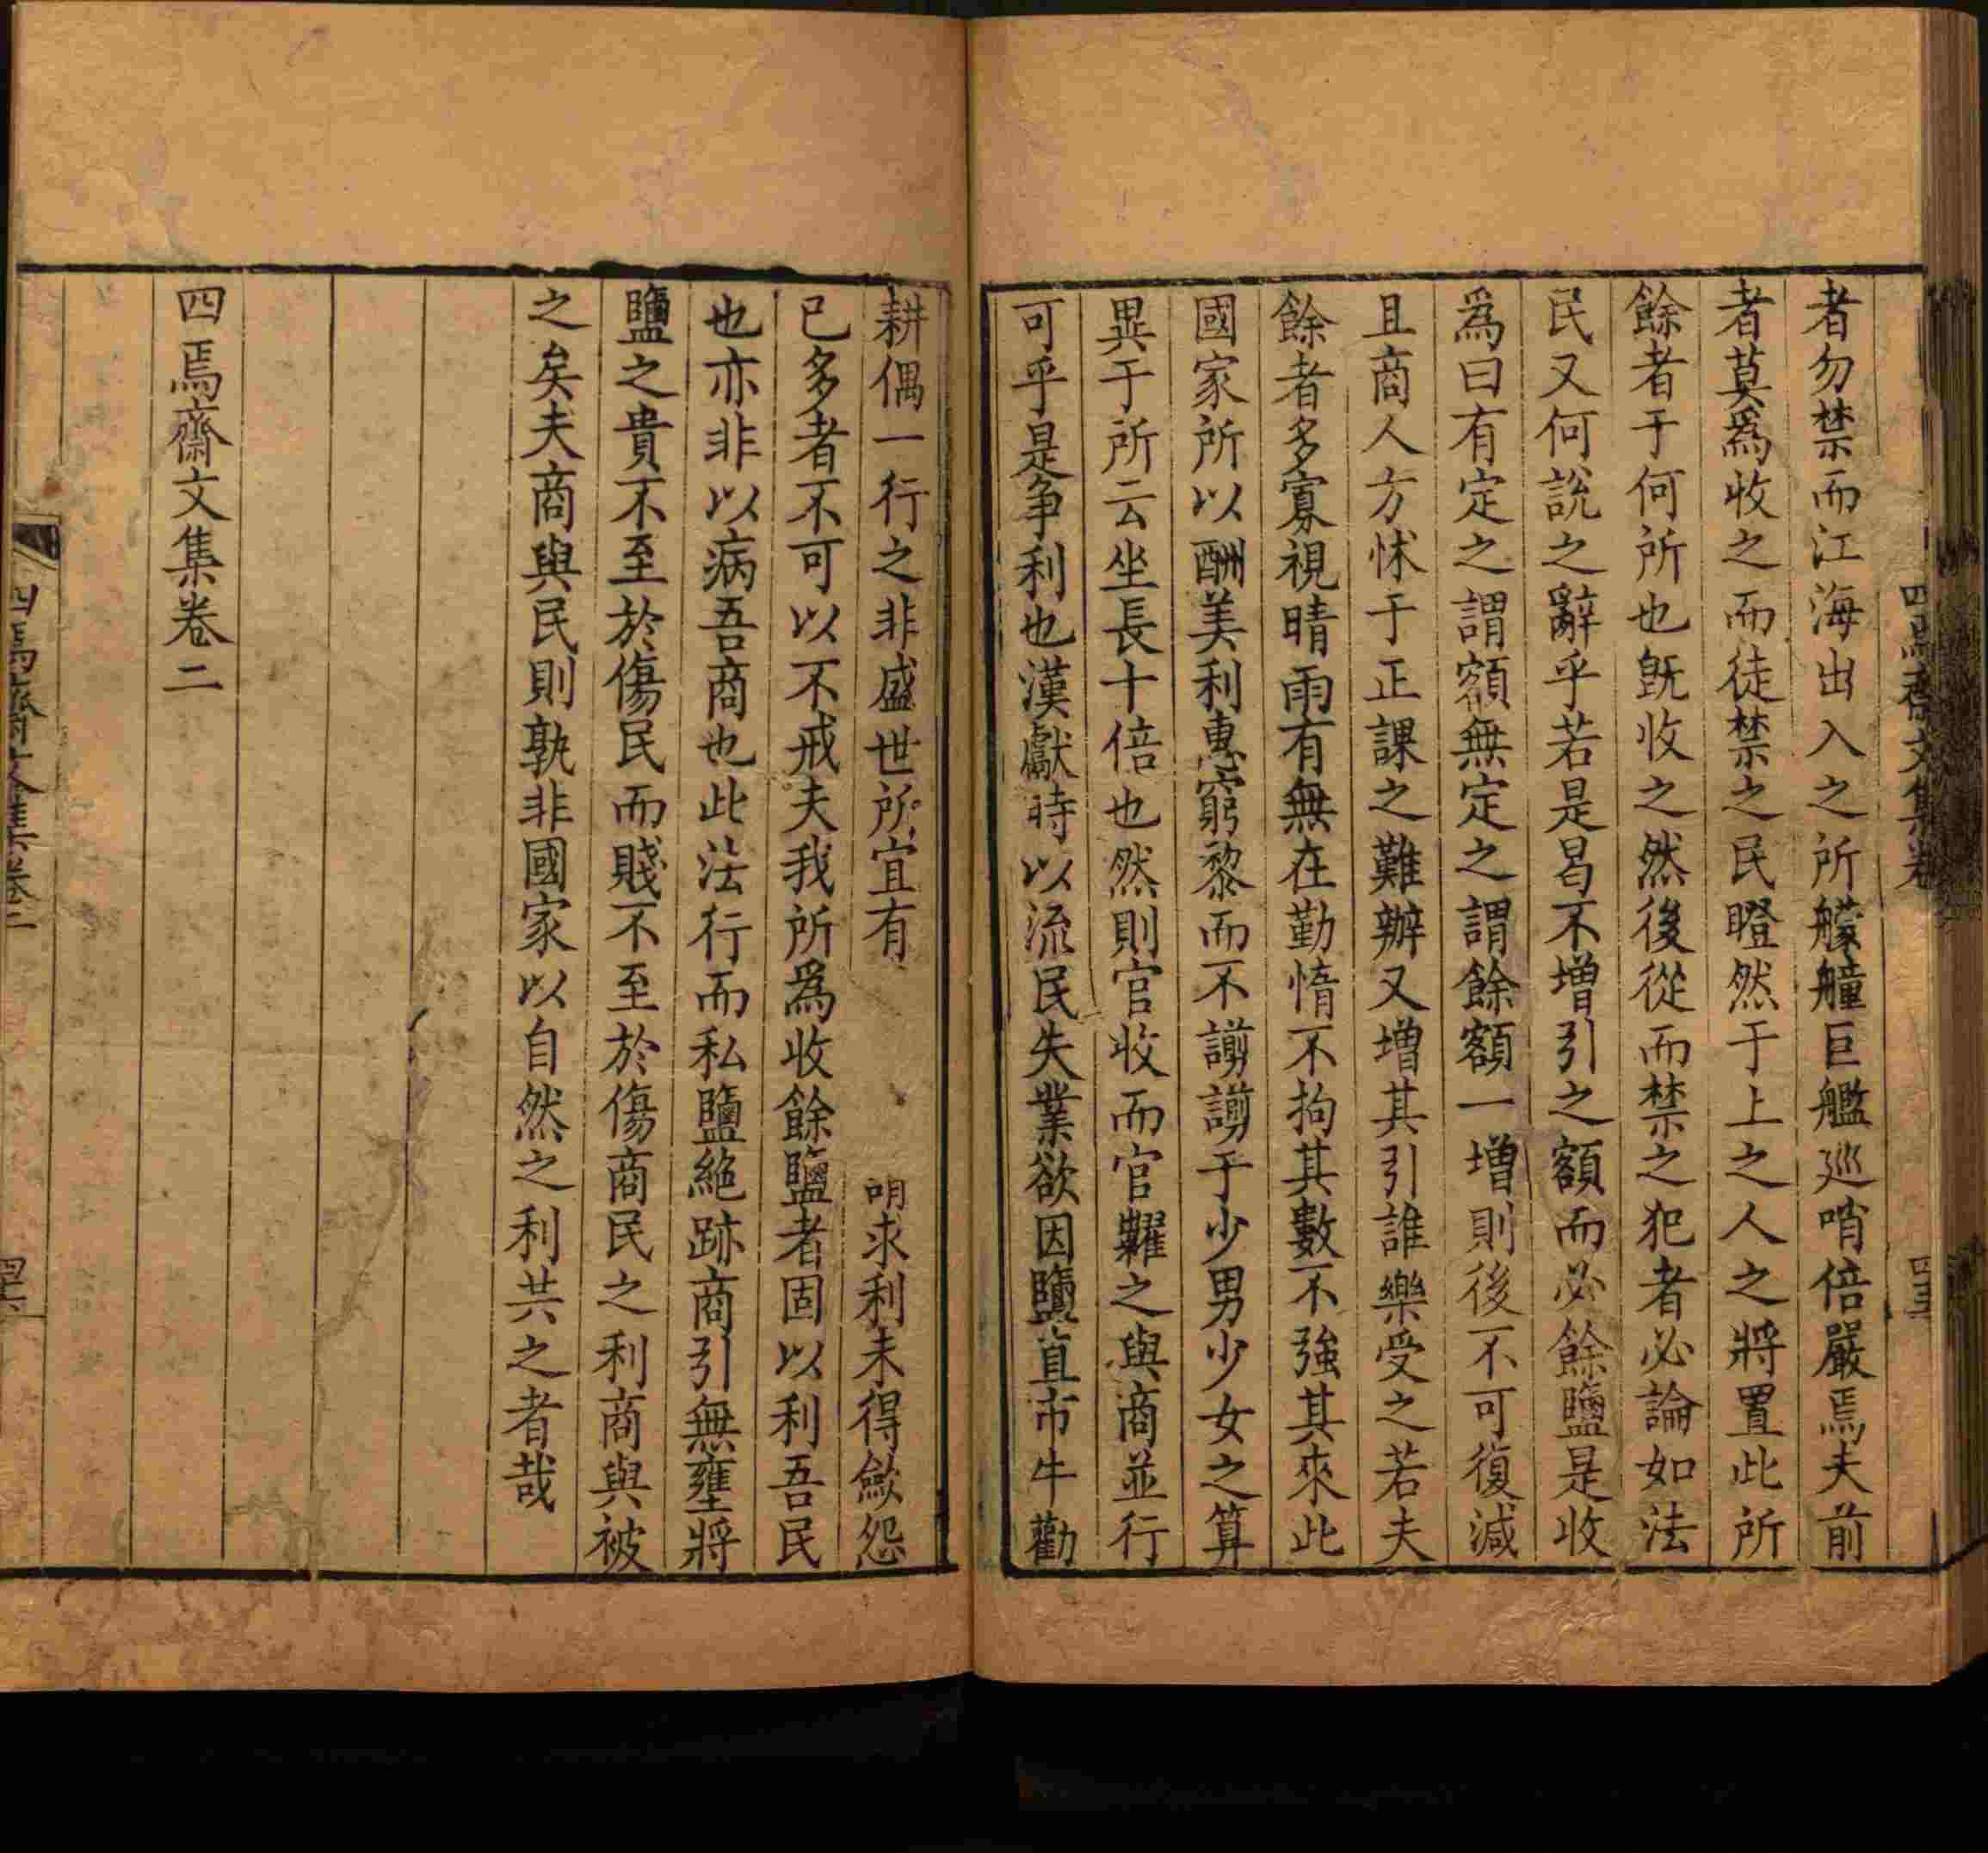 者勿禁而江海出入之所艨艟巨艦巡哨倍嚴焉夫前
者莫爲收之而徒禁之民瞪然于上之人之將置此所
餘者于何所也旣收之然後從而禁之犯者必論如法
民又何說之辭乎若是曷不增引之額而必餘鹽是收
爲曰有定之謂額無定之謂餘額一增則後不可復減
且商人方怵于正課之難辦又增其引誰樂受之若夫
餘者多寡視晴雨有無在勤惰不拘其數不強其來此
國家所以酬美利惠窮黎而不謭謭于少男少女之算
異于所云坐長十倍也然則官收而官糶之與商並行
可乎是争利也漢獻時以流民失業欲因鹽直市牛勸
耕偶一行之非盛世所宜有 明求利未得斂怨
已多者不可以不戒夫我所爲收餘鹽者固以利吾民
也亦非以病吾商也此法行而私鹽絶跡商引無壅將
鹽之貴不至於傷民而賤不至於傷商民之利商與被
之矣夫商與民則孰非國家以自然之利共之者哉
四焉齋文集卷二
四焉齋文集卷二